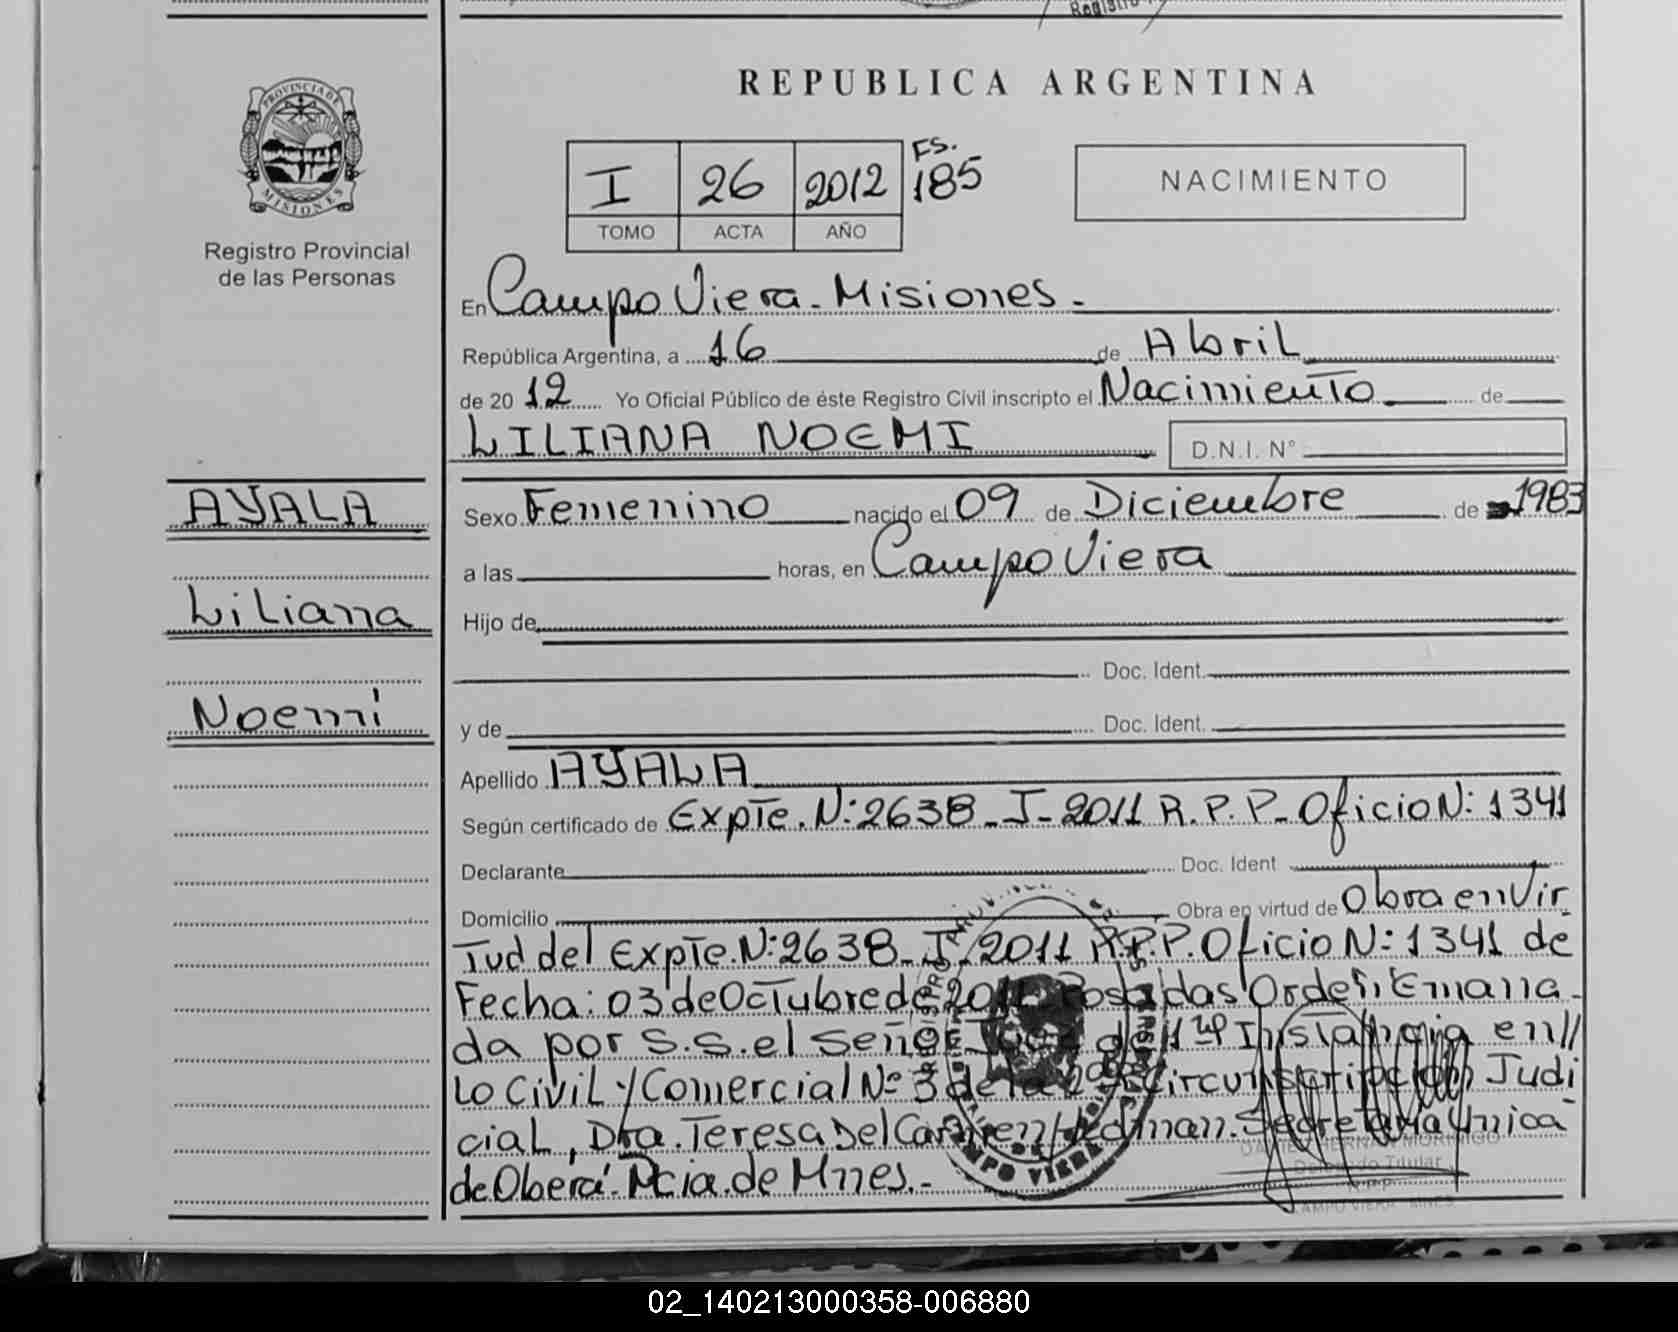 REPUBLICA ARGENTINA
PROVINCIA DE
MISIONES
Registro Provincial
de las Personas
FS.
I 26 2012 185
TOMO ACTA AÑO
NACIMIENTO
En Campo Viera - Misiones -
República Argentina, a 16 de Abril
de 2012 Yo Oficial Público de éste Registro Civil inscripto el Nacimiento de
LILIANA NOEMI D.N.I. N°
AYALA
Liliana
Noemí
Sexo Femenino nacido el 09 de Diciembre de 1983
a las horas, en Campo Viera
Hijo de
Doc. Ident.
y de Doc. Ident.
Apellido AYALA
Según certificado de Expte. N: 2638 - I - 2011 R.P.P - Oficio N: 1341
Declarante Doc. Ident
Domicilio Obra en virtud de Obra en Vir
tud del Expte. N: 2638 - I - 2011 R.P.P. Oficio N: 1341 de
Fecha: 03 de Octubre de 2011 Posadas Orden Emana -
da por S.S. el Señor Juez de 1ra Instancia en //
Lo Civil y Comercial Nº 3 de la 2da Circunscripción Judi
cial, Dra. Teresa Del Carmen Hedman. Secretaria Unica
de Oberá. Pcia. de Mnes. -
CAMPO VIERA
Delegado Titular
R.P.P.
CAMPO VIERA - MNES
02_140213000358-006880